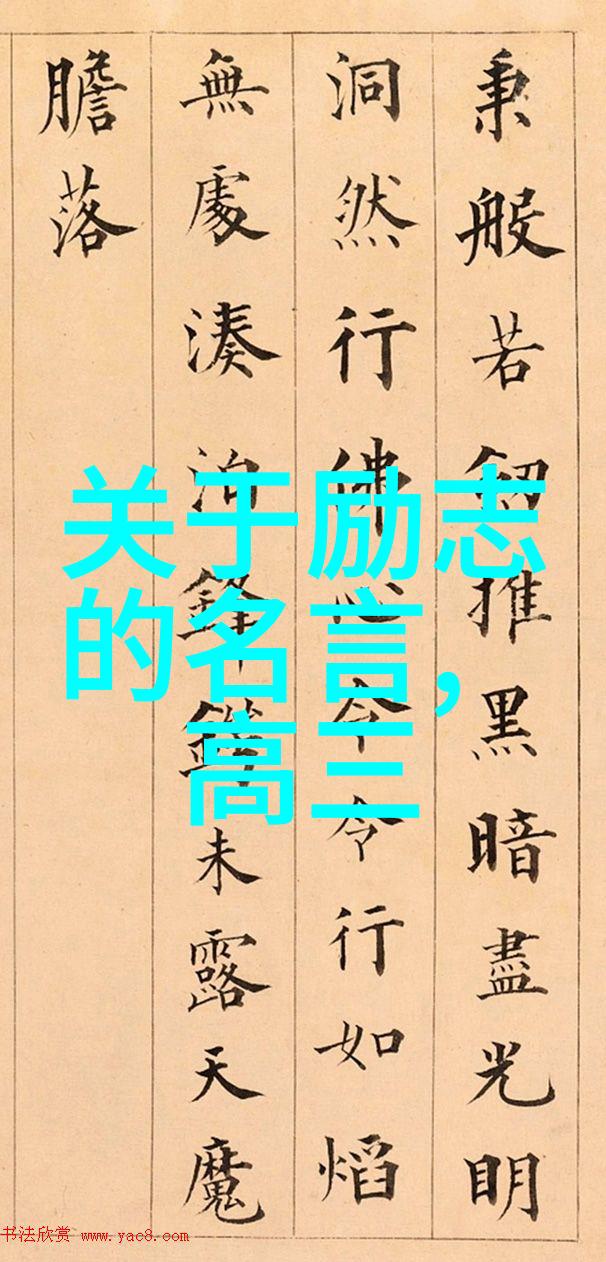 秉般若推黑暗盡光明
洞然行佛心令令行如熖
無處湊泊鋒鋩未露天魔
膽落
关于励志
的名言，
高三
书法欣赏 www.yac8.com